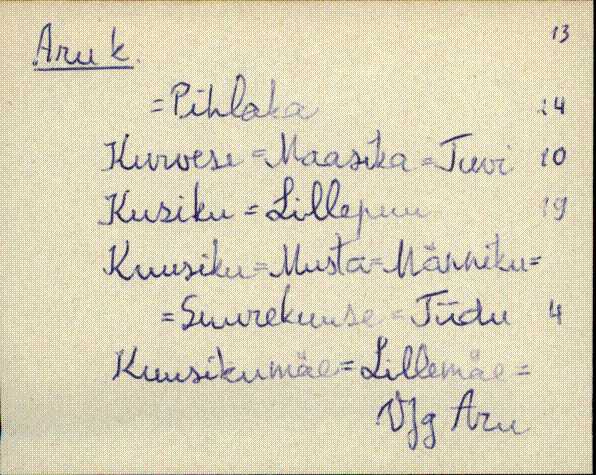 13
Aru k.
=Pihlaka 14
Kurvese=Maasika=Tuvi 10
Kusiku=Lillepuu 19
Kuusiku=Musta=Männiku=
=Suurekuuse=Tiidu 4
Kuusikumäe=Lillemäe=
Vjg Aru